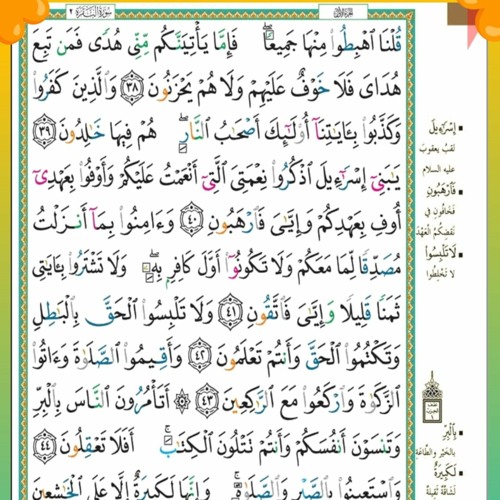 سورة البقرة ٢
الجزء الأول
قُلْنَا ٱهْبِطُوا۟ مِنْهَا جَمِيعًا ۖ فَإِمَّا يَأْتِيَنَّكُم مِّنِّى هُدًى فَمَن تَبِعَ
هُدَاىَ فَلَا خَوْفٌ عَلَيْهِمْ وَلَا هُمْ يَحْزَنُونَ ٣٨ وَٱلَّذِينَ كَفَرُوا۟
وَكَذَّبُوا۟ بِـَٔايَـٰتِنَآ أُو۟لَـٰٓئِكَ أَصْحَـٰبُ ٱلنَّارِ ۖ هُمْ فِيهَا خَـٰلِدُونَ ٣٩
يَـٰبَنِىٓ إِسْرَٰٓءِيلَ ٱذْكُرُوا۟ نِعْمَتِىَ ٱلَّتِىٓ أَنْعَمْتُ عَلَيْكُمْ وَأَوْفُوا۟ بِعَهْدِىٓ
أُوفِ بِعَهْدِكُمْ وَإِيَّـٰىَ فَٱرْهَبُونِ ٤٠ وَءَامِنُوا۟ بِمَآ أَنزَلْتُ
مُصَدِّقًا لِّمَا مَعَكُمْ وَلَا تَكُونُوٓا۟ أَوَّلَ كَافِرٍۭ بِهِۦ ۖ وَلَا تَشْتَرُوا۟ بِـَٔايَـٰتِى
ثَمَنًا قَلِيلًا وَإِيَّـٰىَ فَٱتَّقُونِ ٤١ وَلَا تَلْبِسُوا۟ ٱلْحَقَّ بِٱلْبَـٰطِلِ
وَتَكْتُمُوا۟ ٱلْحَقَّ وَأَنتُمْ تَعْلَمُونَ ٤٢ وَأَقِيمُوا۟ ٱلصَّلَوٰةَ وَءَاتُوا۟
ٱلزَّكَوٰةَ وَٱرْكَعُوا۟ مَعَ ٱلرَّٰكِعِينَ ٤٣ ۞ أَتَأْمُرُونَ ٱلنَّاسَ بِٱلْبِرِّ
وَتَنسَوْنَ أَنفُسَكُمْ وَأَنتُمْ تَتْلُونَ ٱلْكِتَـٰبَ ۚ أَفَلَا تَعْقِلُونَ ٤٤
وَٱسْتَعِينُوا۟ بِٱلصَّبْرِ وَٱلصَّلَوٰةِ ۚ وَإِنَّهَا لَكَبِيرَةٌ إِلَّا عَلَى ٱلْخَـٰشِعِينَ
إِسْرَٰٓءِيلَ
لقبُ يعقوبَ
عليه السلام
فَٱرْهَبُونِ
فَخَافُونِ فِي
نَقْضِكُمُ العَهْدَ
لَا تَلْبِسُوا۟
لا تَخْلِطُوا
بِٱلْبِرِّ
بالخَيْرِ والطَّاعةِ
لَكَبِيرَةٌ
لَشَاقَّةٌ ثَقِيلَةٌ